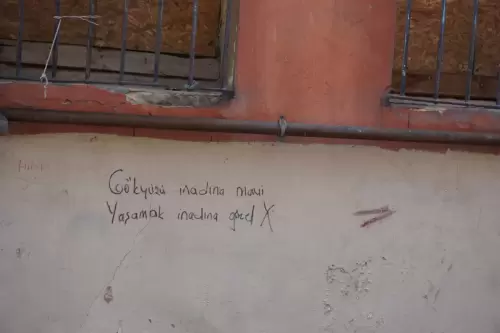 Gökyüzü inadına mavi
Yaşamak inadına güzel X